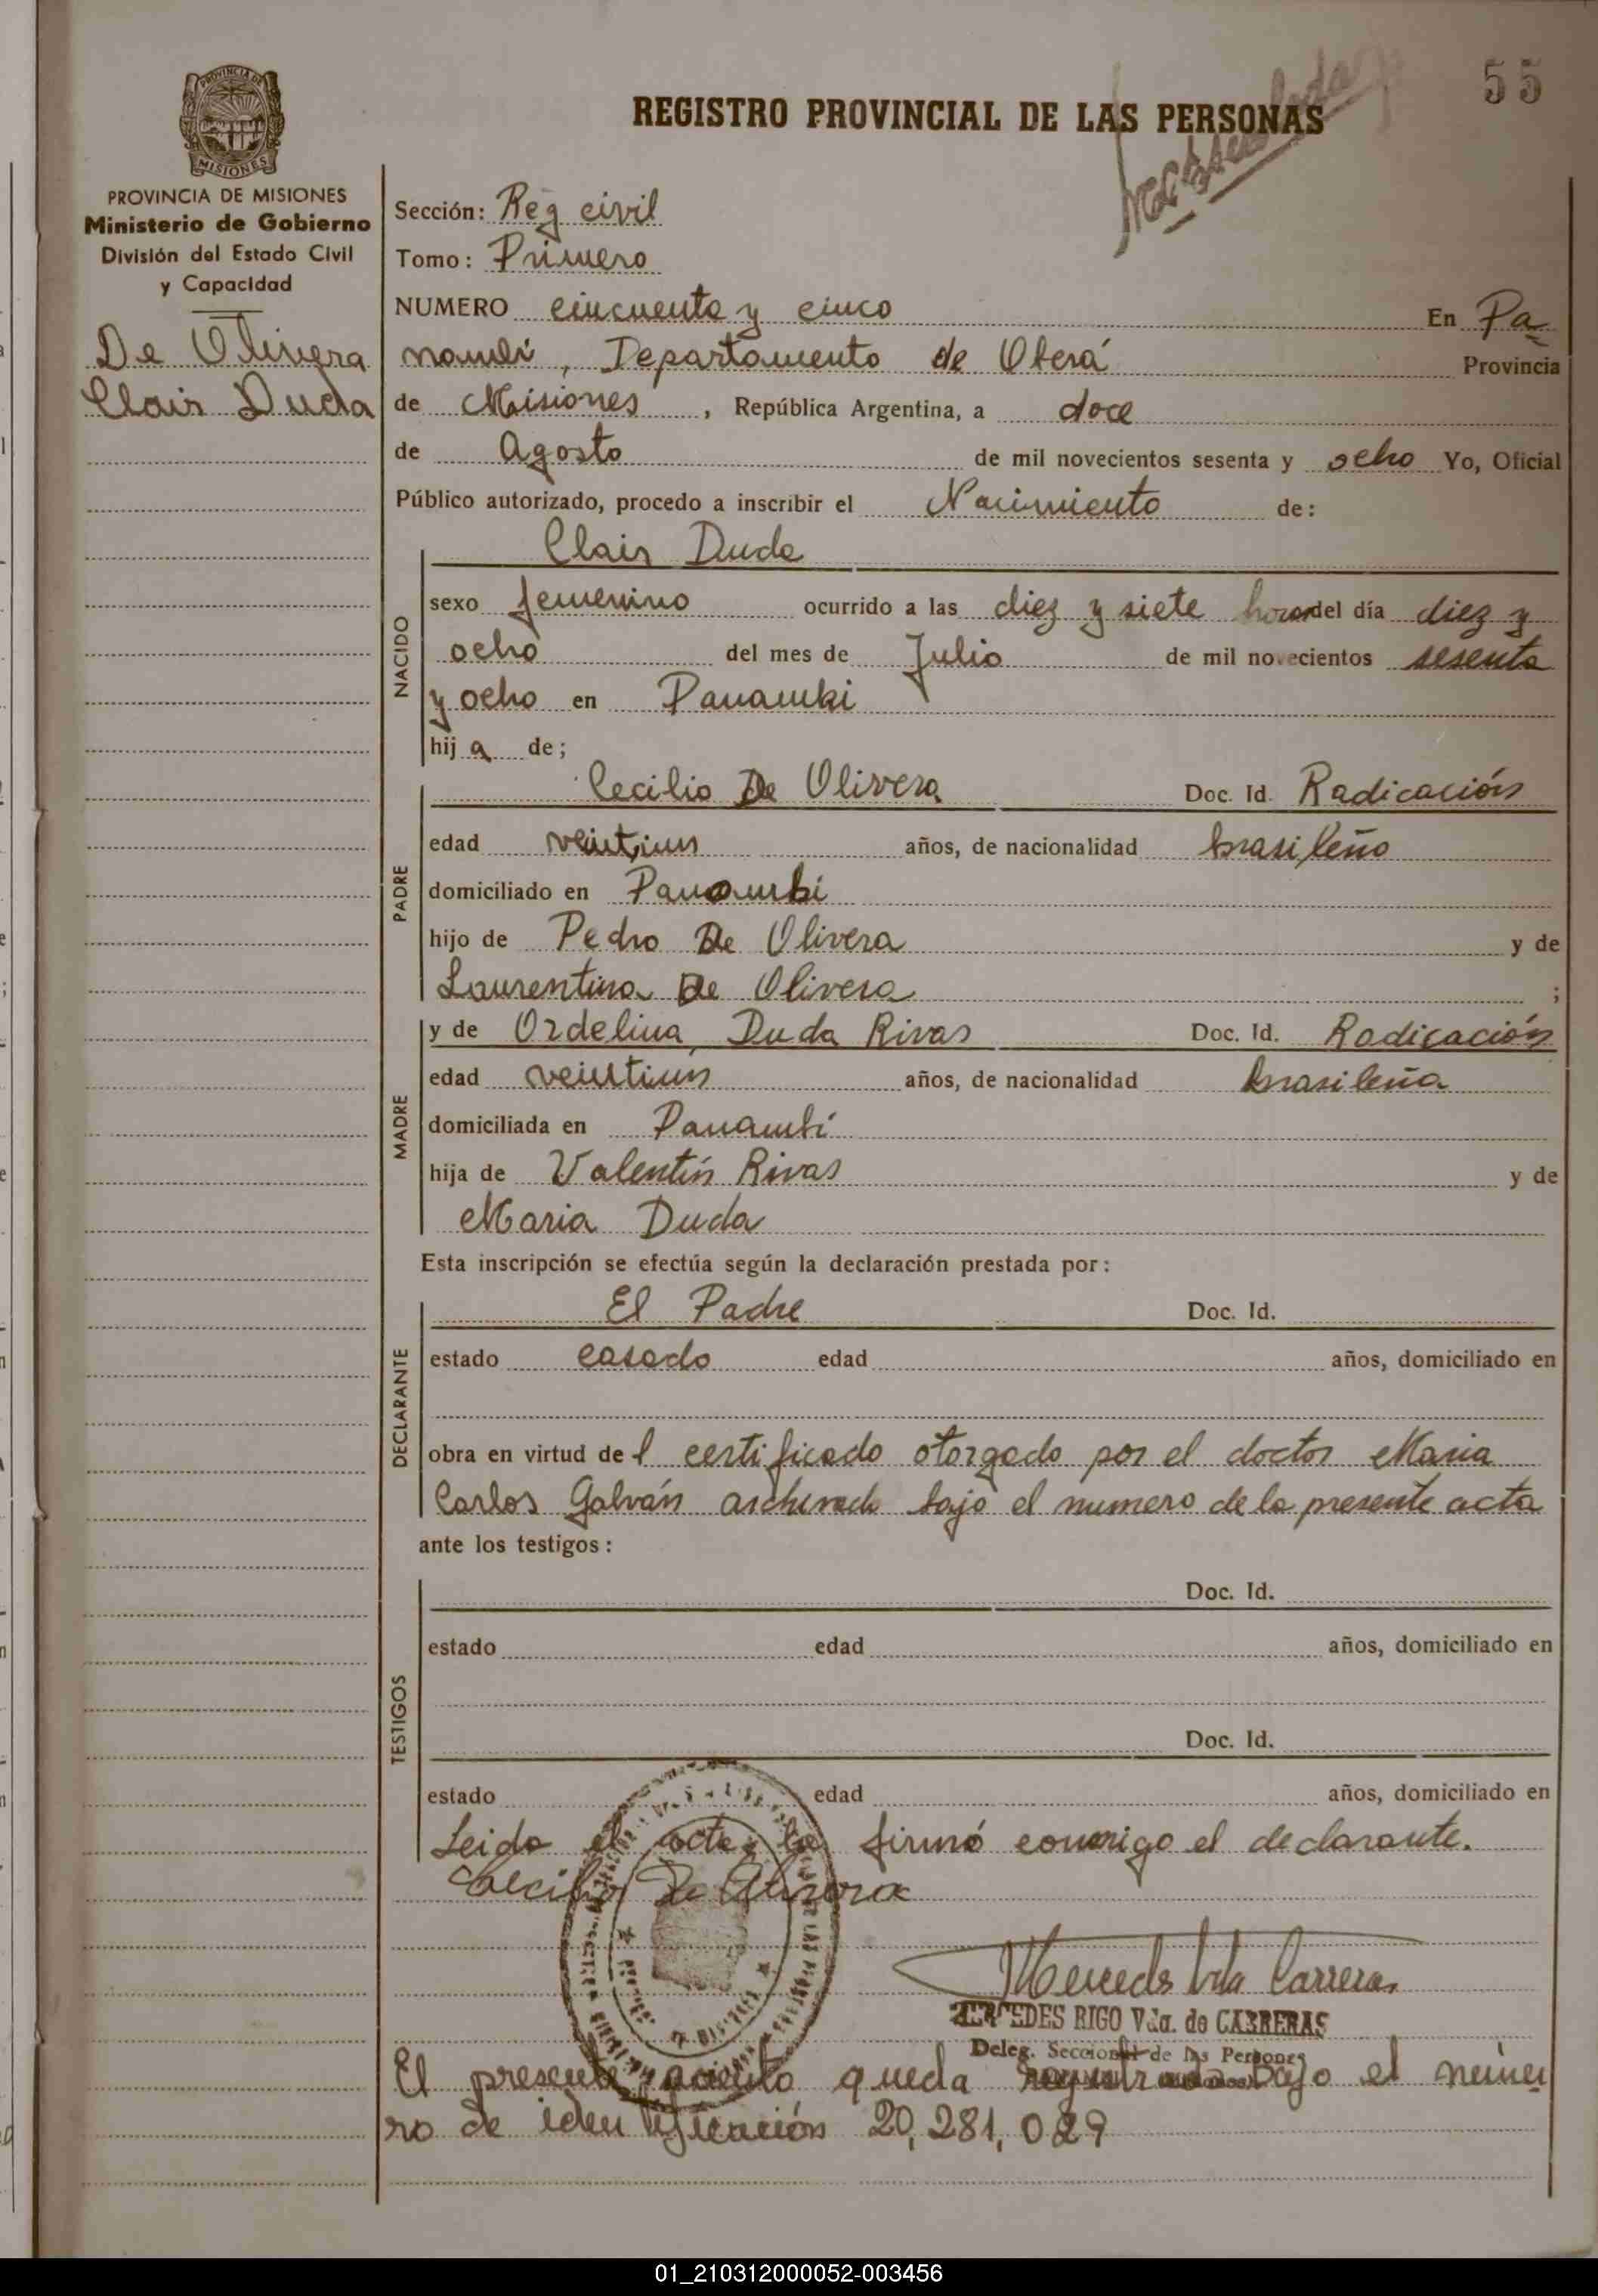 55
REGISTRO PROVINCIAL DE LAS PERSONAS
PROVINCIA DE
MISIONES
PROVINCIA DE MISIONES
Ministerio de Gobierno
División del Estado Civil
y Capacidad
De Olivera
Clair Duda
Sección: Reg civil
Tomo: Primero
NUMERO cincuenta y cinco En Pa
nambí, Departamento de Oberá Provincia
de Misiones, República Argentina, a doce
de Agosto de mil novecientos sesenta y ocho Yo, Oficial
Público autorizado, procedo a inscribir el Nacimiento de:
NACIDO
Clair Duda
sexo femenino ocurrido a las diez y siete horas del día diez y
ocho del mes de Julio de mil novecientos sesenta
y ocho en Panambi
hij a de;
PADRE
Cecilio De Olivera Doc. Id. Radicación
edad veintiun años, de nacionalidad brasileño
domiciliado en Panambi
hijo de Pedro De Olivera y de
Laurentina De Olivera ;
MADRE
y de Ordelina Duda Rivas Doc. Id. Radicación
edad veintiun años, de nacionalidad brasileña
domiciliada en Panambí
hija de Valentín Rivas y de
Maria Duda
Esta inscripción se efectúa según la declaración prestada por:
DECLARANTE
El Padre Doc. Id.
estado casado edad años, domiciliado en
obra en virtud de l certificado otorgado por el doctor Maria
Carlos Galván archivado bajo el numero de la presente acta
ante los testigos:
TESTIGOS
Doc. Id.
estado edad años, domiciliado en
Doc. Id.
estado edad años, domiciliado en
Leida el acta, la firmó conmigo el declarante.
Cecilio De Olivera
Mercedes Vda Carreras
MERCEDES RIGO Vda. de CARRERAS
Deleg. Seccional de las Personas
El presente asiento queda registrado bajo el núme
ro de identificación 20,281,029
01_210312000052-003456